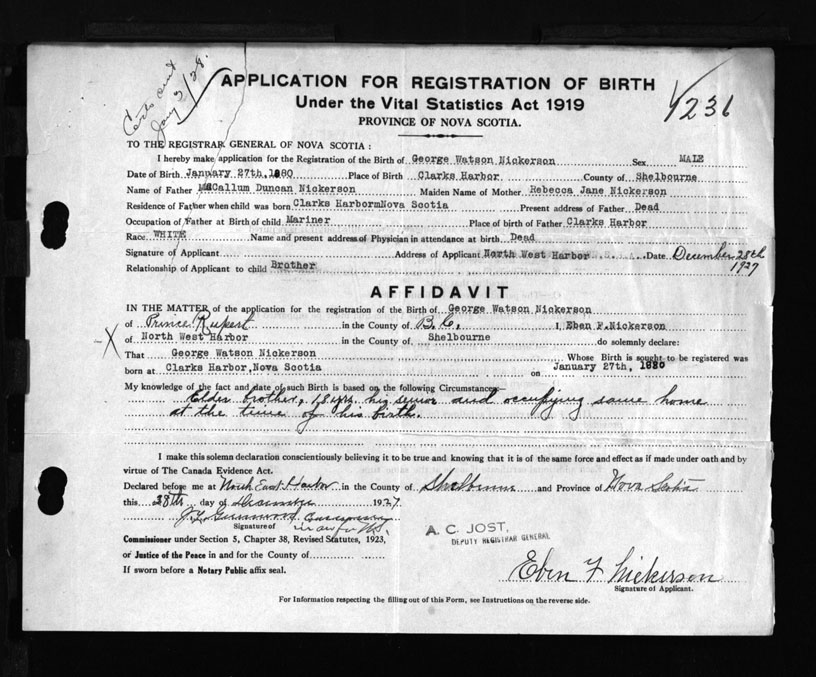 Certs sent
Jany 3/28.
APPLICATION FOR REGISTRATION OF BIRTH
1236
Under the Vital Statistics Act 1919
PROVINCE OF NOVA SCOTIA.
TO THE REGISTRAR GENERAL OF NOVA SCOTIA :
I hereby make application for the Registration of the Birth of George Watson Nickerson Sex MALE
Date of Birth January 27th, 1880 Place of Birth Clarks Harbor County of Shelbourne
Name of Father McCallum Duncan Nickerson Maiden Name of Mother Rebecca Jane Nickerson
Residence of Father when child was born Clarks HarbormNova Scotia Present address of Father Dead
Occupation of Father at Birth of child Mariner Place of Birth of Father Clarks Harbor
Race WHITE Name and present address of Physician in attendance at birth Dead
Signature of Applicant Address of Applicant North West Harbor Date December 28th
1927
Relationship of Applicant to child Brother
AFFIDAVIT
IN THE MATTER of the application for the registration of the Birth of George Watson Nickerson
of Prince Rupert in the County of B.C. I, Eben F.Nickerson
X of North West Harbor in the County of Shelbourne do solemnly declare:
That George Watson Nickerson Whose Birth is sought to be registered was
born at Clarks Harbor,Nova Scotia on January 27th, 1880
My knowledge of the fact and date of such Birth is based on the following Circumstances:—
Elder brother, 18 yrs. his senior and occupying same home
at the time of his birth.
I make this solemn declaration conscientiously believing it to be true and knowing that it is of the same force and effect as if made under oath and by
virtue of The Canada Evidence Act.
Declared before me at North East Harbor in the County of Shelburne and Province of Nova Scotia
this 28th day of December 1927
Signature of
Commissioner under Section 5, Chapter 38, Revised Statutes, 1923,
or Justice of the Peace in and for the County of
If sworn before a Notary Public affix seal.
A. C. JOST,
DEPUTY REGISTRAR GENERAL
Eben F Nickerson
Signature of Applicant.
For Information respecting the filling out of this Form, see Instructions on the reverse side.